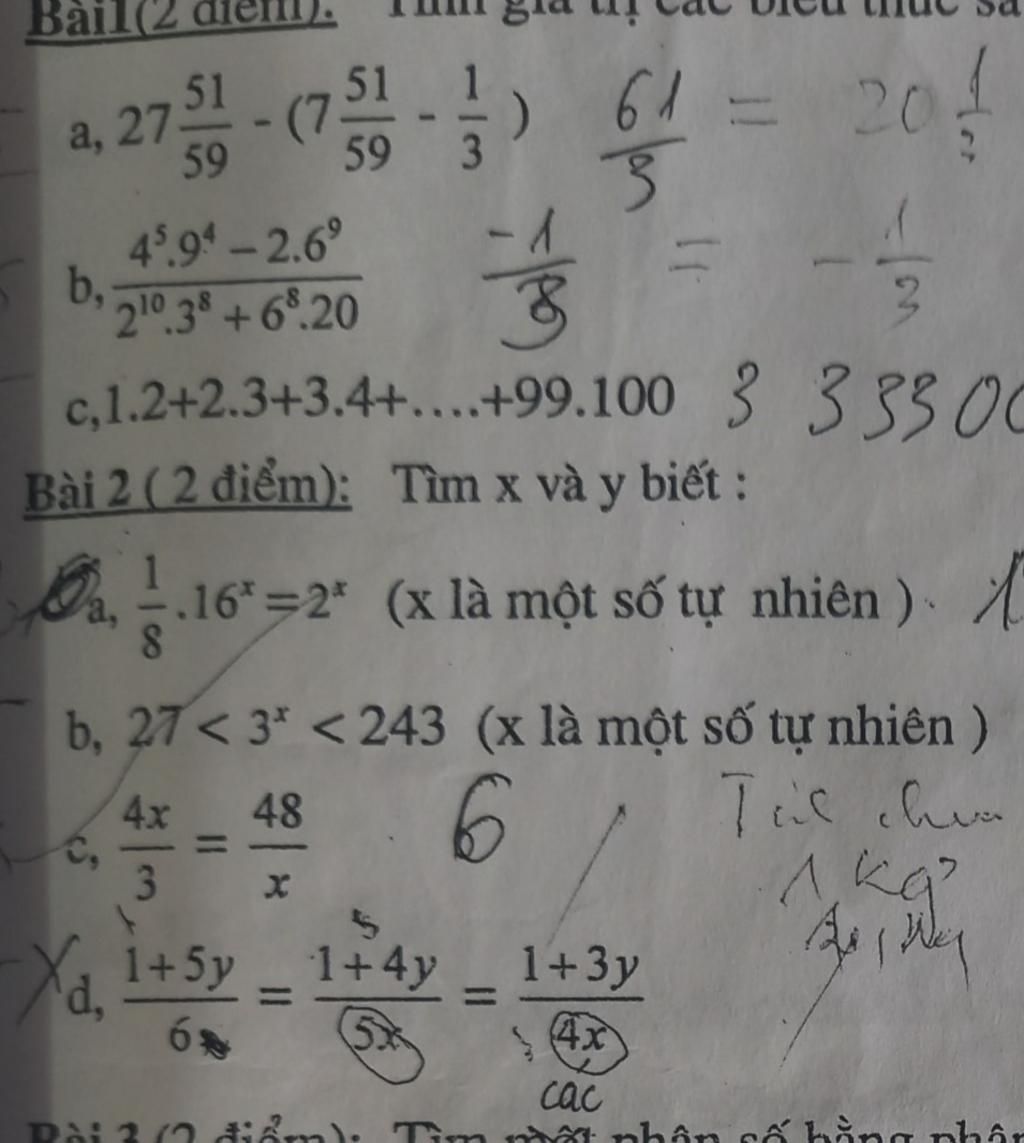 Bài1(2 điểm): Tính giá trị các biểu thức sa
a, 27 51/59 - (7 51/59 - 1/3 ) 61/3 = 20 1/3
b, (4⁵.9⁴ – 2.6⁹)/(2¹⁰.3⁸ + 6⁸.20) -1/3 = -1/3
c,1.2+2.3+3.4+....+99.100 3 33300
Bài 2 ( 2 điểm): Tìm x và y biết :
a, 1/8 .16ˣ = 2ˣ (x là một số tự nhiên ) 1
b, 27 < 3ˣ < 243 (x là một số tự nhiên )
c, 4x/3 = 48/x 6
1 kg
5
d, (1+5y)/6 = (1+4y)/5x = (1+3y)/4x
cac
Bài 3 (2 điểm): Tìm một phân số bằng phân